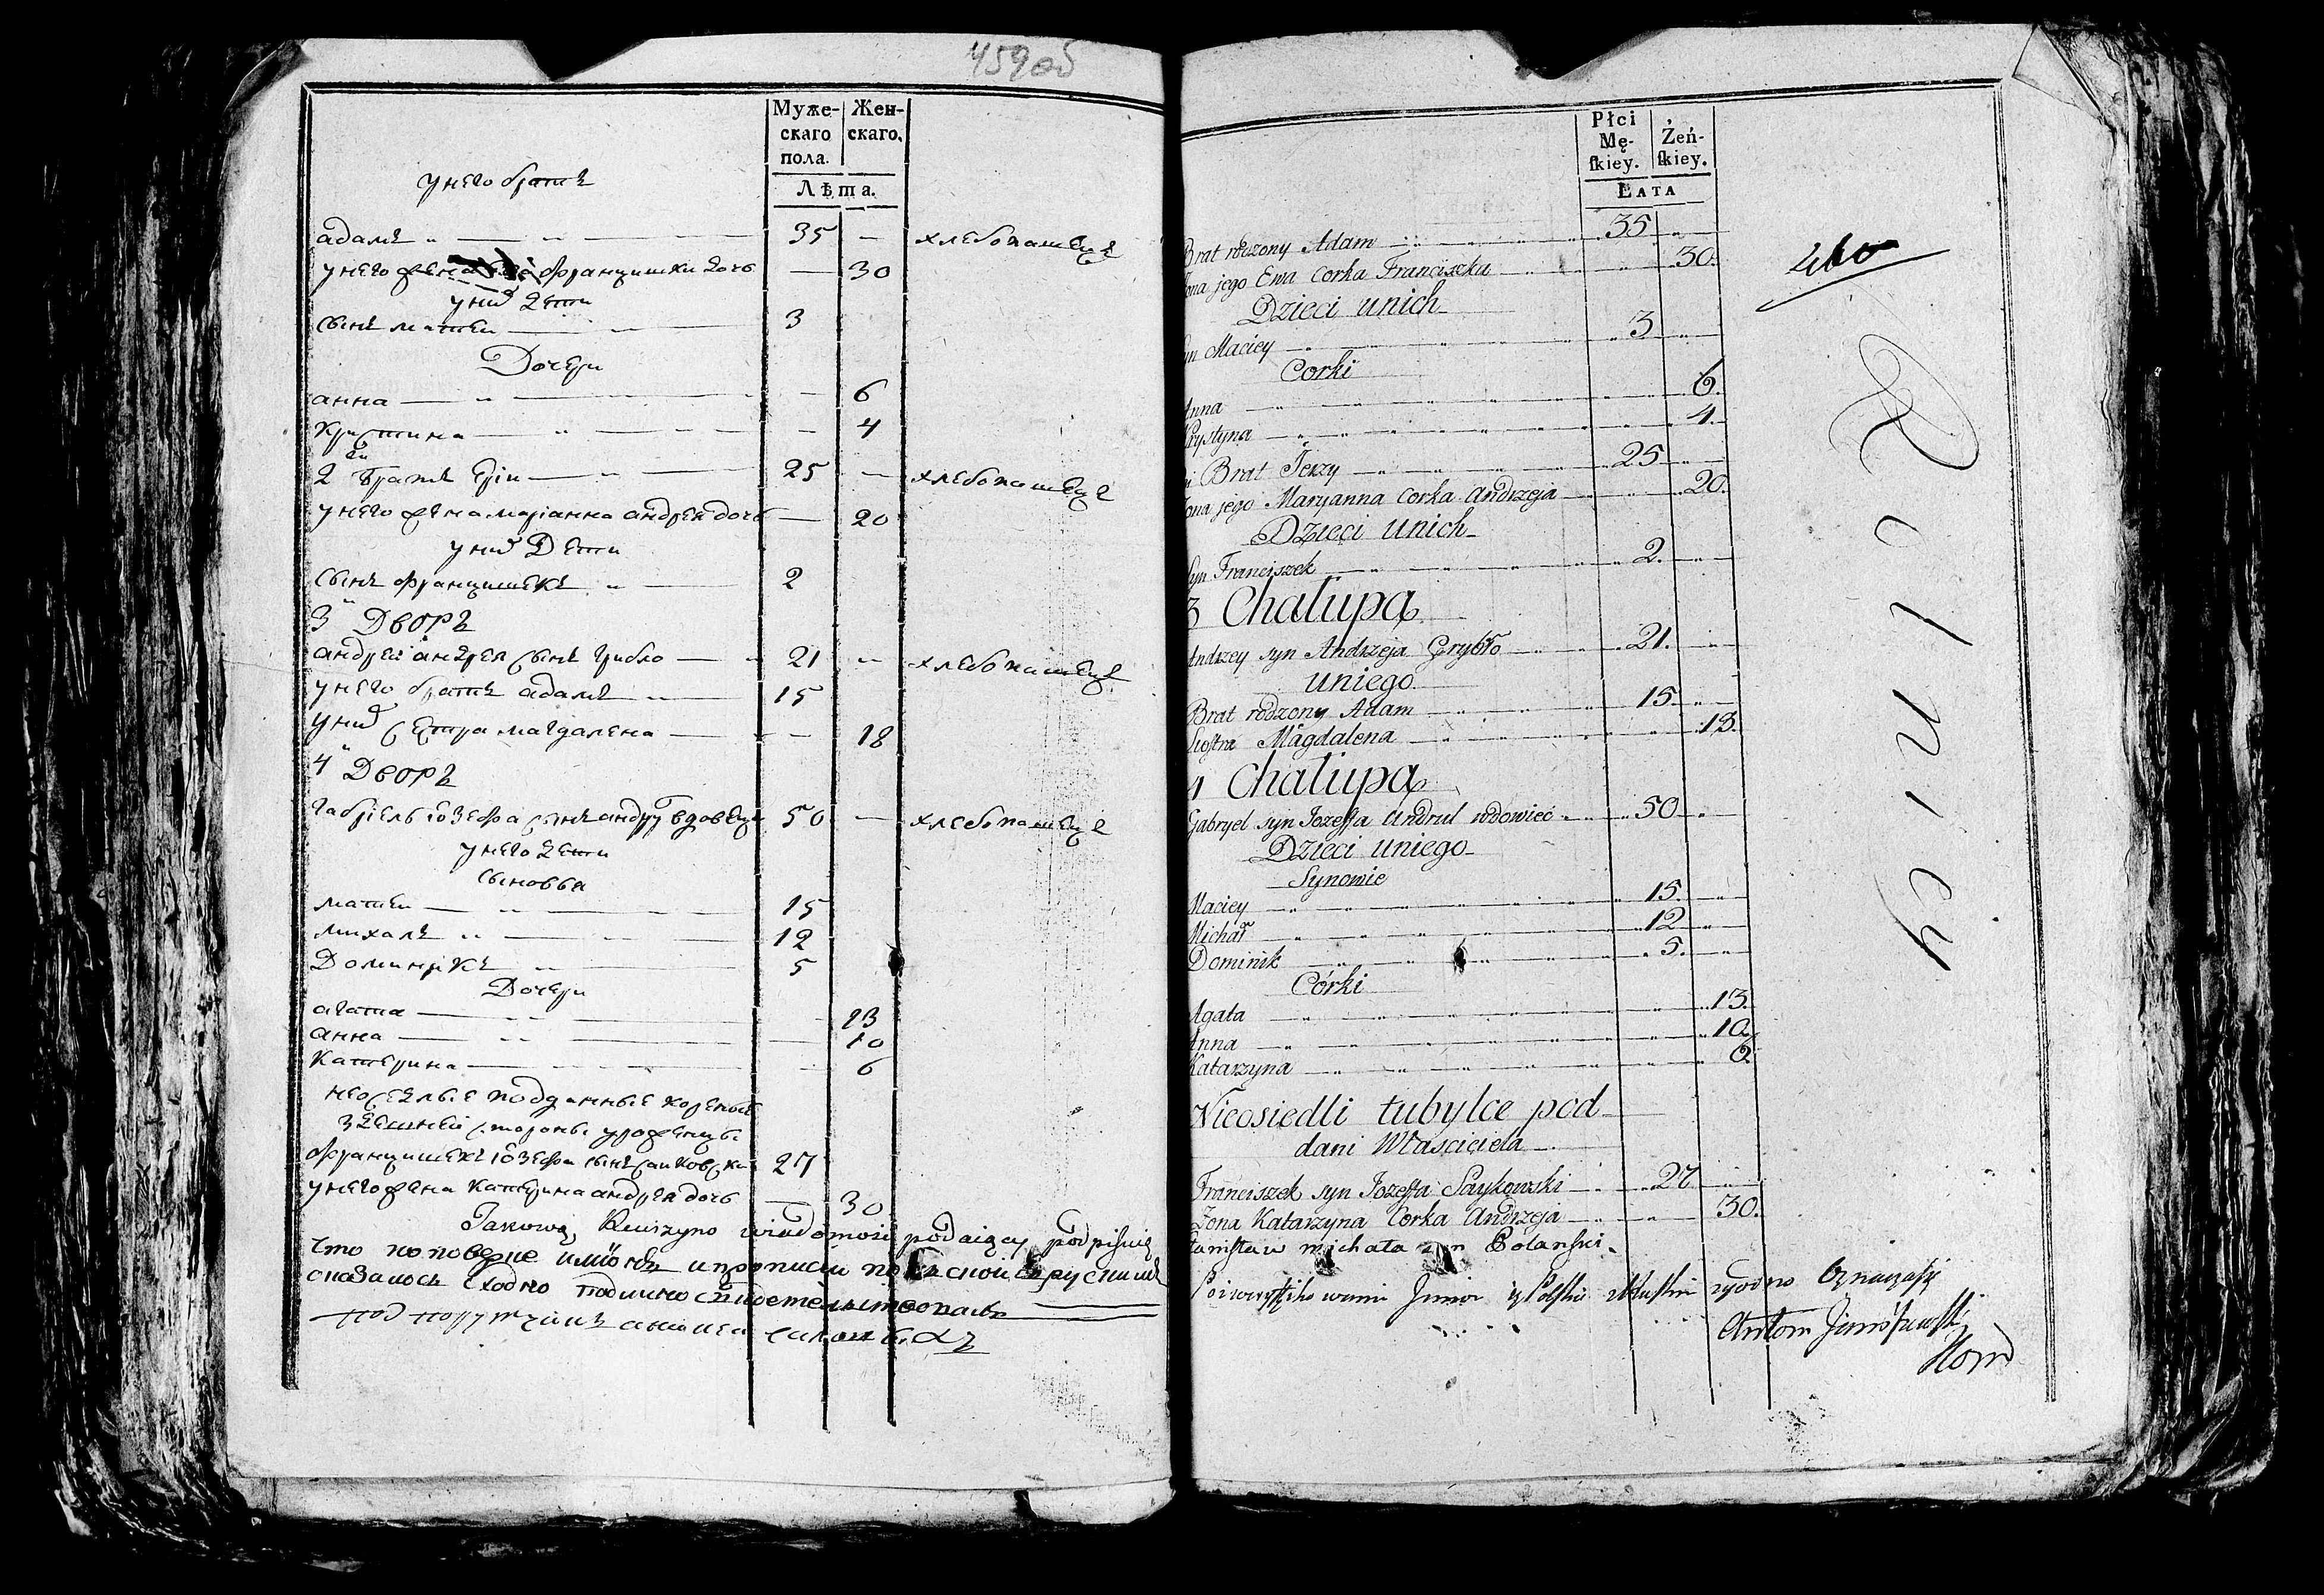 459об
Муже- Жен-
скаго скаго.
пола.
Лѣта.
у него братъ
адамъ 35 — хлебопашецъ
у него жена Францишки дочь — 30
у них дети
сынъ матеи 3
Дочери
анна — 6
Кристина — 4
2й Братъ Ерiи 25 — хлебопашецъ
у него жена марiанна андрея дочь — 20
у них Дети
сынъ Францишекъ 2
3й Дворъ
андреи андрея сынъ Грибло 21 — хлебопашецъ
у него братъ адамъ 15
у них сестра магдалена — 18
4й Дворъ
габрiель iозефа сынъ андрул вдовецъ 50 — хлебопашецъ
у него дети
сыновья
матеи 15
михалъ 12
Доминикъ 5
Дочери
агата 13
анна — 10
Катерина 6
неоселые подданные кореные
здешней стороны уроженцы
Францишекъ iозефа сынъ саиковски 27
у него жена катерина андрея дочь — 30
Takową Rewizyino wiadomość podaiący podpisuię
что по поверке
сказалось сходно
Płci
Mę- Żeń-
ſkiey. ſkiey.
Lата
460
Brat rodzony Adam 35
Żona jego Ewa Corka Franciszka 30.
Dzieci unich
Syn Maciey 3
Corki
Anna 6.
Krystyna 4.
Brat Jerzy 25
Żona jego Maryanna Corka Andrzeja 20.
Dzieci unich
Syn Franciszek 2.
3 Chałupa
Andrzey syn Andrzeja Grybło 21.
uniego
Brat rodzony Adam 15.
Siostra Magdalena 18.
4 Chałupa
Gabryel syn Jozeffa Andrul wdowiec 50
Dzieci uniego
Synowie
Maciey 15.
Michał 12
Dominik 5.
Córki
Agata 13.
Anna 10
Katarzyna 6.
Nieosiedli tubylce pod
dani Właściciela
Franciszek syn Jozeffa Saykowski 27
Żona Katarzyna Corka Andrzeja 30.
Stanisław michała syn Polanski.
Antoni
Rolnicy